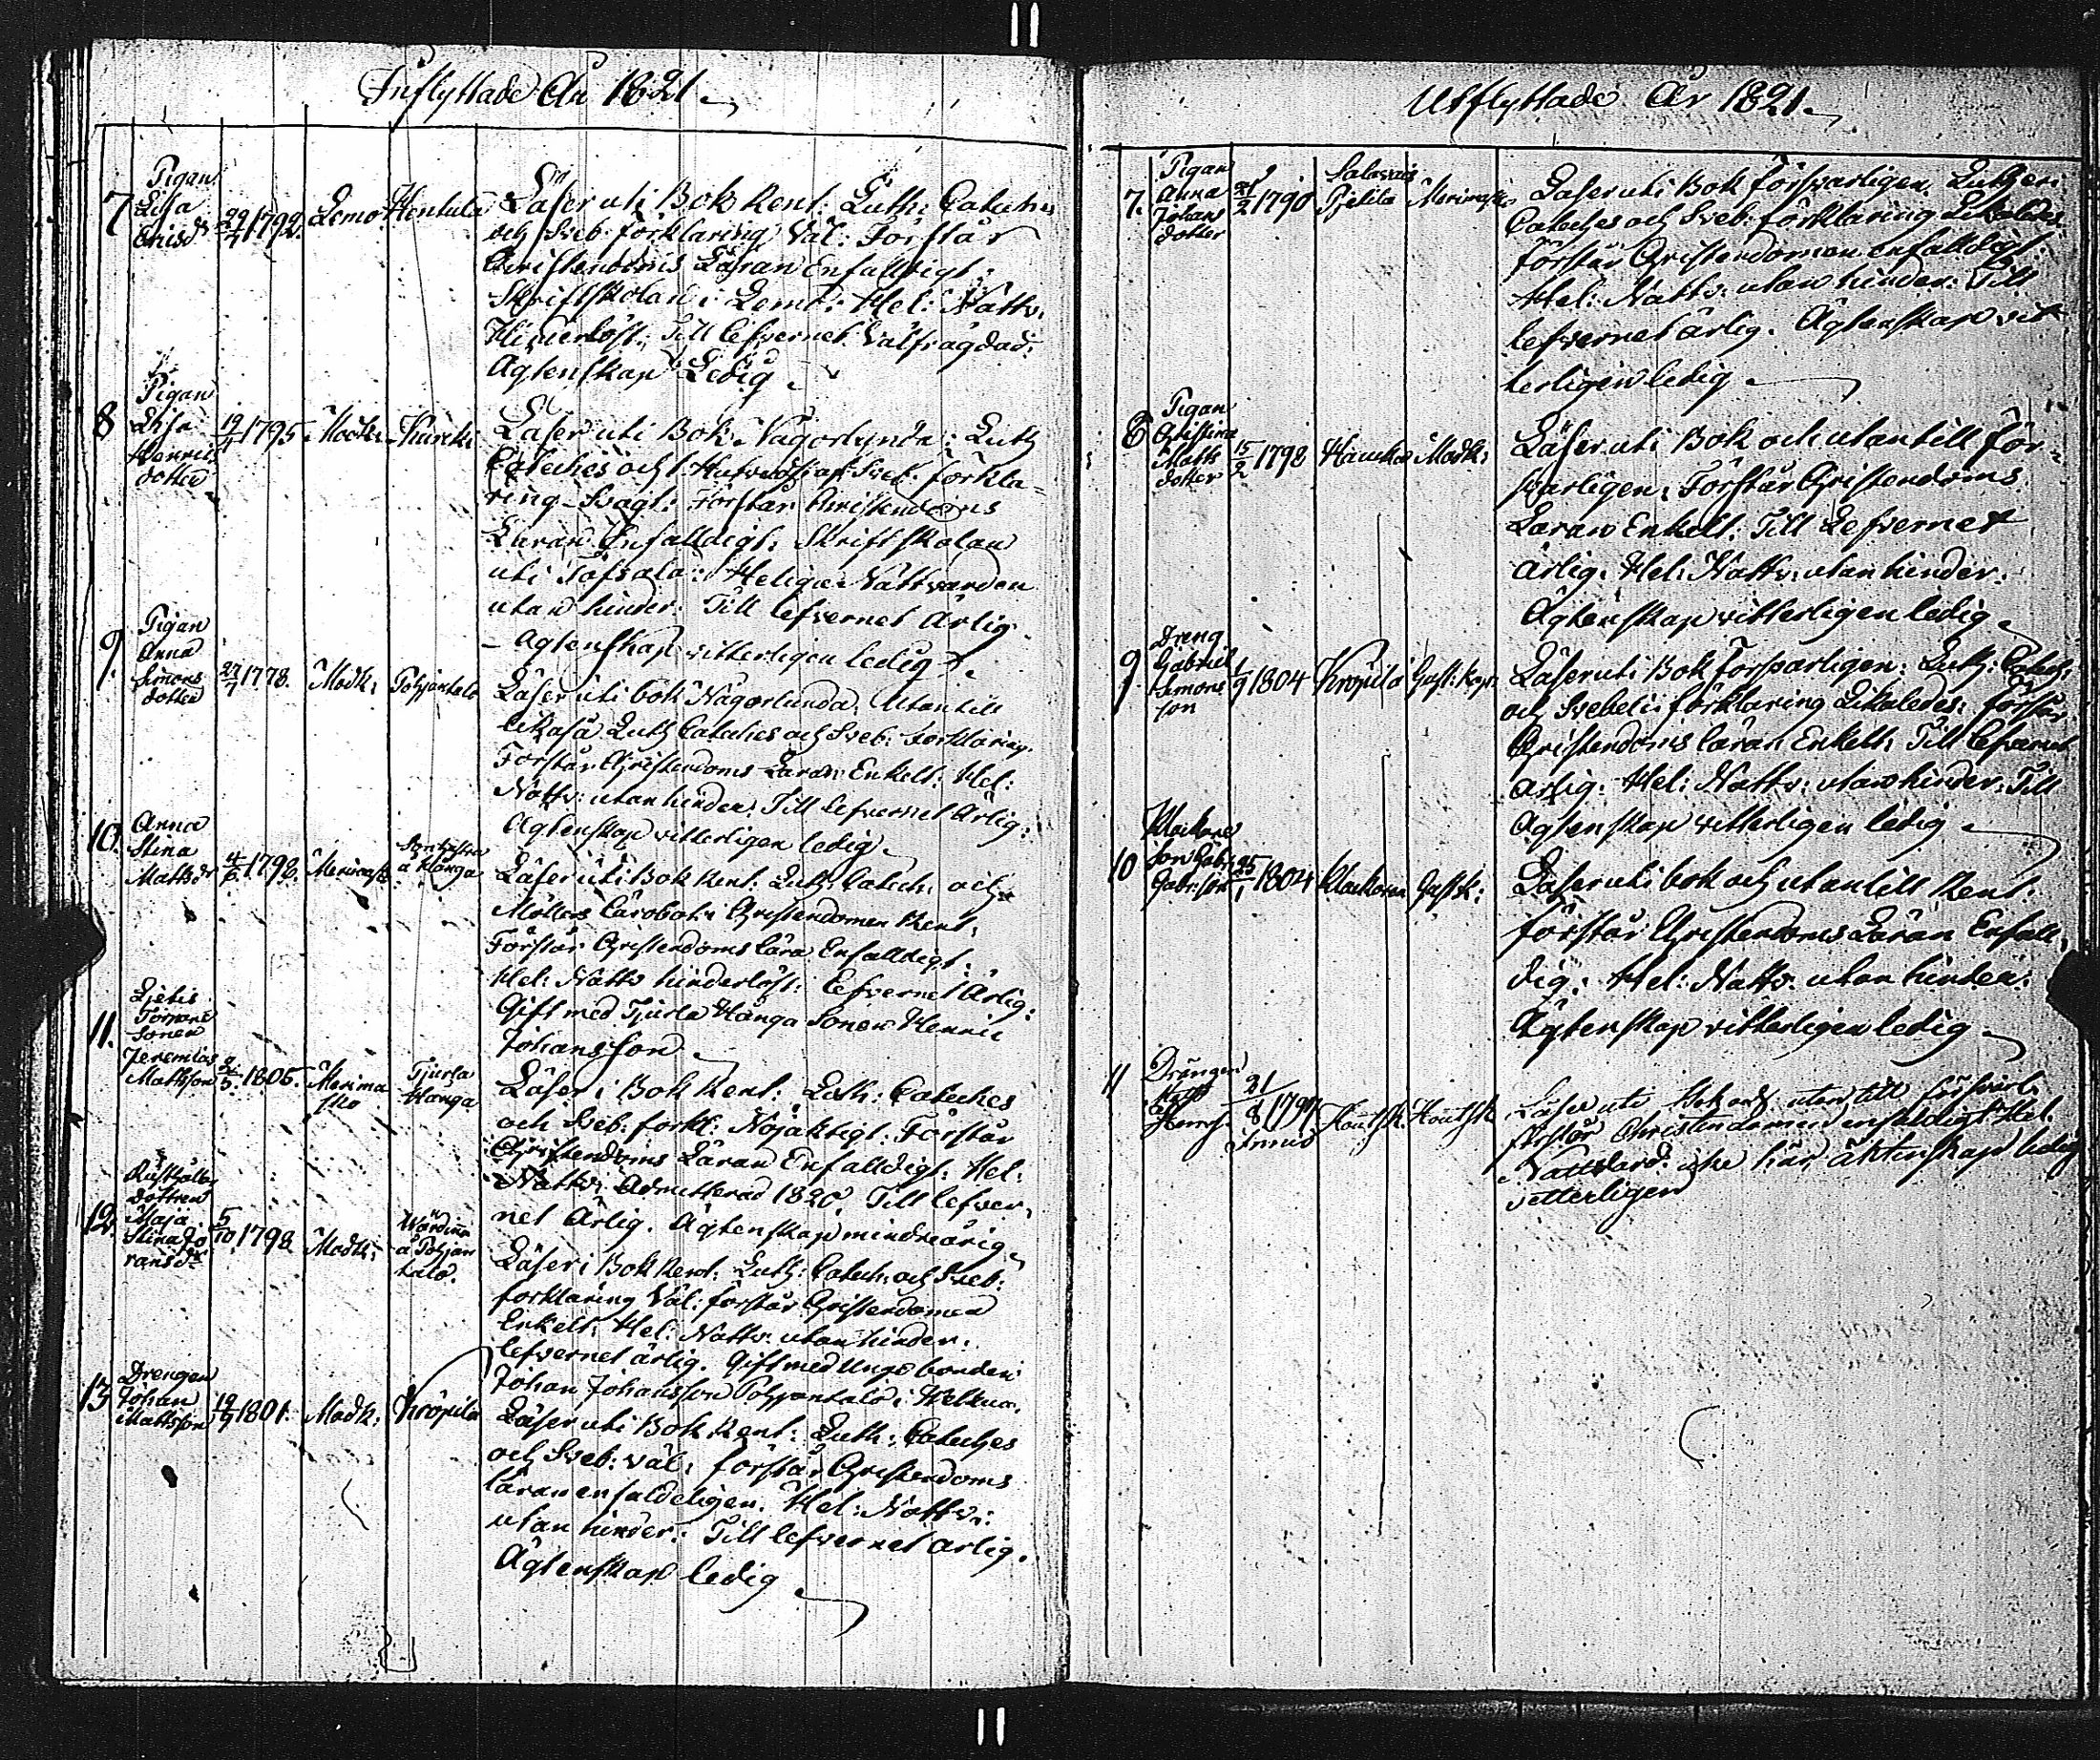 Inflyttade År 1821
7 Pigan
Lisa
Erisdr 29/4 1792. Lemo Hentula
Läser uti Bok Rent: Luth: Cateches
och Sveb: förklaring Väl: Förstår
Christendoms Läran Enfalldigt:
Skriftskolan i Lemo: Hel: Nattv:
Hinderlöst: Till lefvernet Välfrägdad:
Ägtenskap Ledig
8 Pigan
Lisa
Henrics
dotter 1795 Mask:
Läser uti Bok Någorlunda: Luth
Cateches och Sveb: förkla=
ring Svagt: Förstår Christendoms
Läran Enfalldigt: Skriftskolan
uti Töfsala: Heliga Nattvarden
utan hinder: Till lefvernet Ärlig
Ägtenskap vitterligen ledig
9. Pigan
Anna
Simons
dotter 27/7 1778. Mask: Pohjantalo
Läser uti bok Någorlunda, Utantill
likaså Luth Cateches och Sveb: förklaring.
Förstår Christendoms Läran Enkelt: Hel:
Nattv: utan hinder: Till Lefvernet Ärlig:
Ägtenskap vitterligen ledig
10. Anna
Stina
Mattsdr 1798. Merimask:
å Hånga
Läser uti Bok Rent: Luth: Catech: och
Möllers Lärobok i Christendomen Rent,
Förstår Christendoms Lära Enfalldigt:
Hel: Nattv hinderlöst: Lefvernet Ärlig:
Gift med Tjurla Hånga Sonen Henric
Johansson
11. Torpare
Sonen
Jeremias
Mattsson 1805. Merima
sko Tjurla
Hånga
Läser i Bok Rent: Luth: Cateches
och Sveb: förkl: Nöjaktigt: Förstår
Christendoms Läran Enfalldigt: Hel:
Nattv: Admitterad 1820. Till lefver
net Ärlig. Ägtenskap minderårig
12. Rusthålls
dottren
Maja
Stina Jo
hansdr 5/10 1798 Mask:
å Pohjan
talo.
Läser i Bok Rent: Luth: Catech: och Sveb:
förklaring Väl: förstår Christendomen
Enkelt: Hel: Nattv: utan hinder:
Lefvernet ärlig. Gift med Unge bonden
Johan Johansson Pohjantalo i Welkua.
13 Drengen
Johan
Mattsson 1801. Mask: Kröpilä
Läser uti Bok Rent: Luth: Cateches
och Sveb: väl: förstår Christendoms
läran enfaldeligen. Hel: Nattv:
utan hinder: Till lefvernet ärlig.
Ägtenskap ledig
Utflyttade År 1821.
7. Pigan
Anna
Johans
dotter 1790 Merimasko
Läser uti Bok försvarligen Lutheri
Cateches och Sveb: förklaring Likaledes:
förstår Christendomen enfalldigt:
Hel: Nattv: utan hinder: Till
Lefvernet ärlig. Ägtenskap vit
terligen ledig
8 Pigan
Christina
Matts
dotter 15/2 1798 Mask:
Läser uti Bok och utantill för=
svarligen, Förstår Christendoms
Läran Enkelt: Till Lefvernet
ärlig: Hel: Nattv: utan hinder.
Ägtenskap vitterligen ledig
9 Dreng
Gabriel
Simons
son 1/9 1804 Kröpilä
Läser uti Bok försvarligen: Luth: Catech:
och Svebelii förklaring Likaledes: förstår
Christendoms läran Enkelt: Till lefvernet
ärlig: Hel: Nattv: utan hinder: Till
Ägtenskap vitterligen ledig
10 Klockare
son Gabr:
Gabr:son 25/1 1804
Läser uti bok och utantill Rent:
förstår Christendoms Läran Enfall
dig: Hel: Nattv: utan hinder:
Ägtenskap vitterligen ledig
11 Drängen
Matts
Henrs: 21/8 1797 Houtsk. Houtsk
Läser uti bok och utan till försvarl:
förstår Christendomen enfaldigt Hel:
Nattvard: icke här, äktenskap ledig
vetterligen